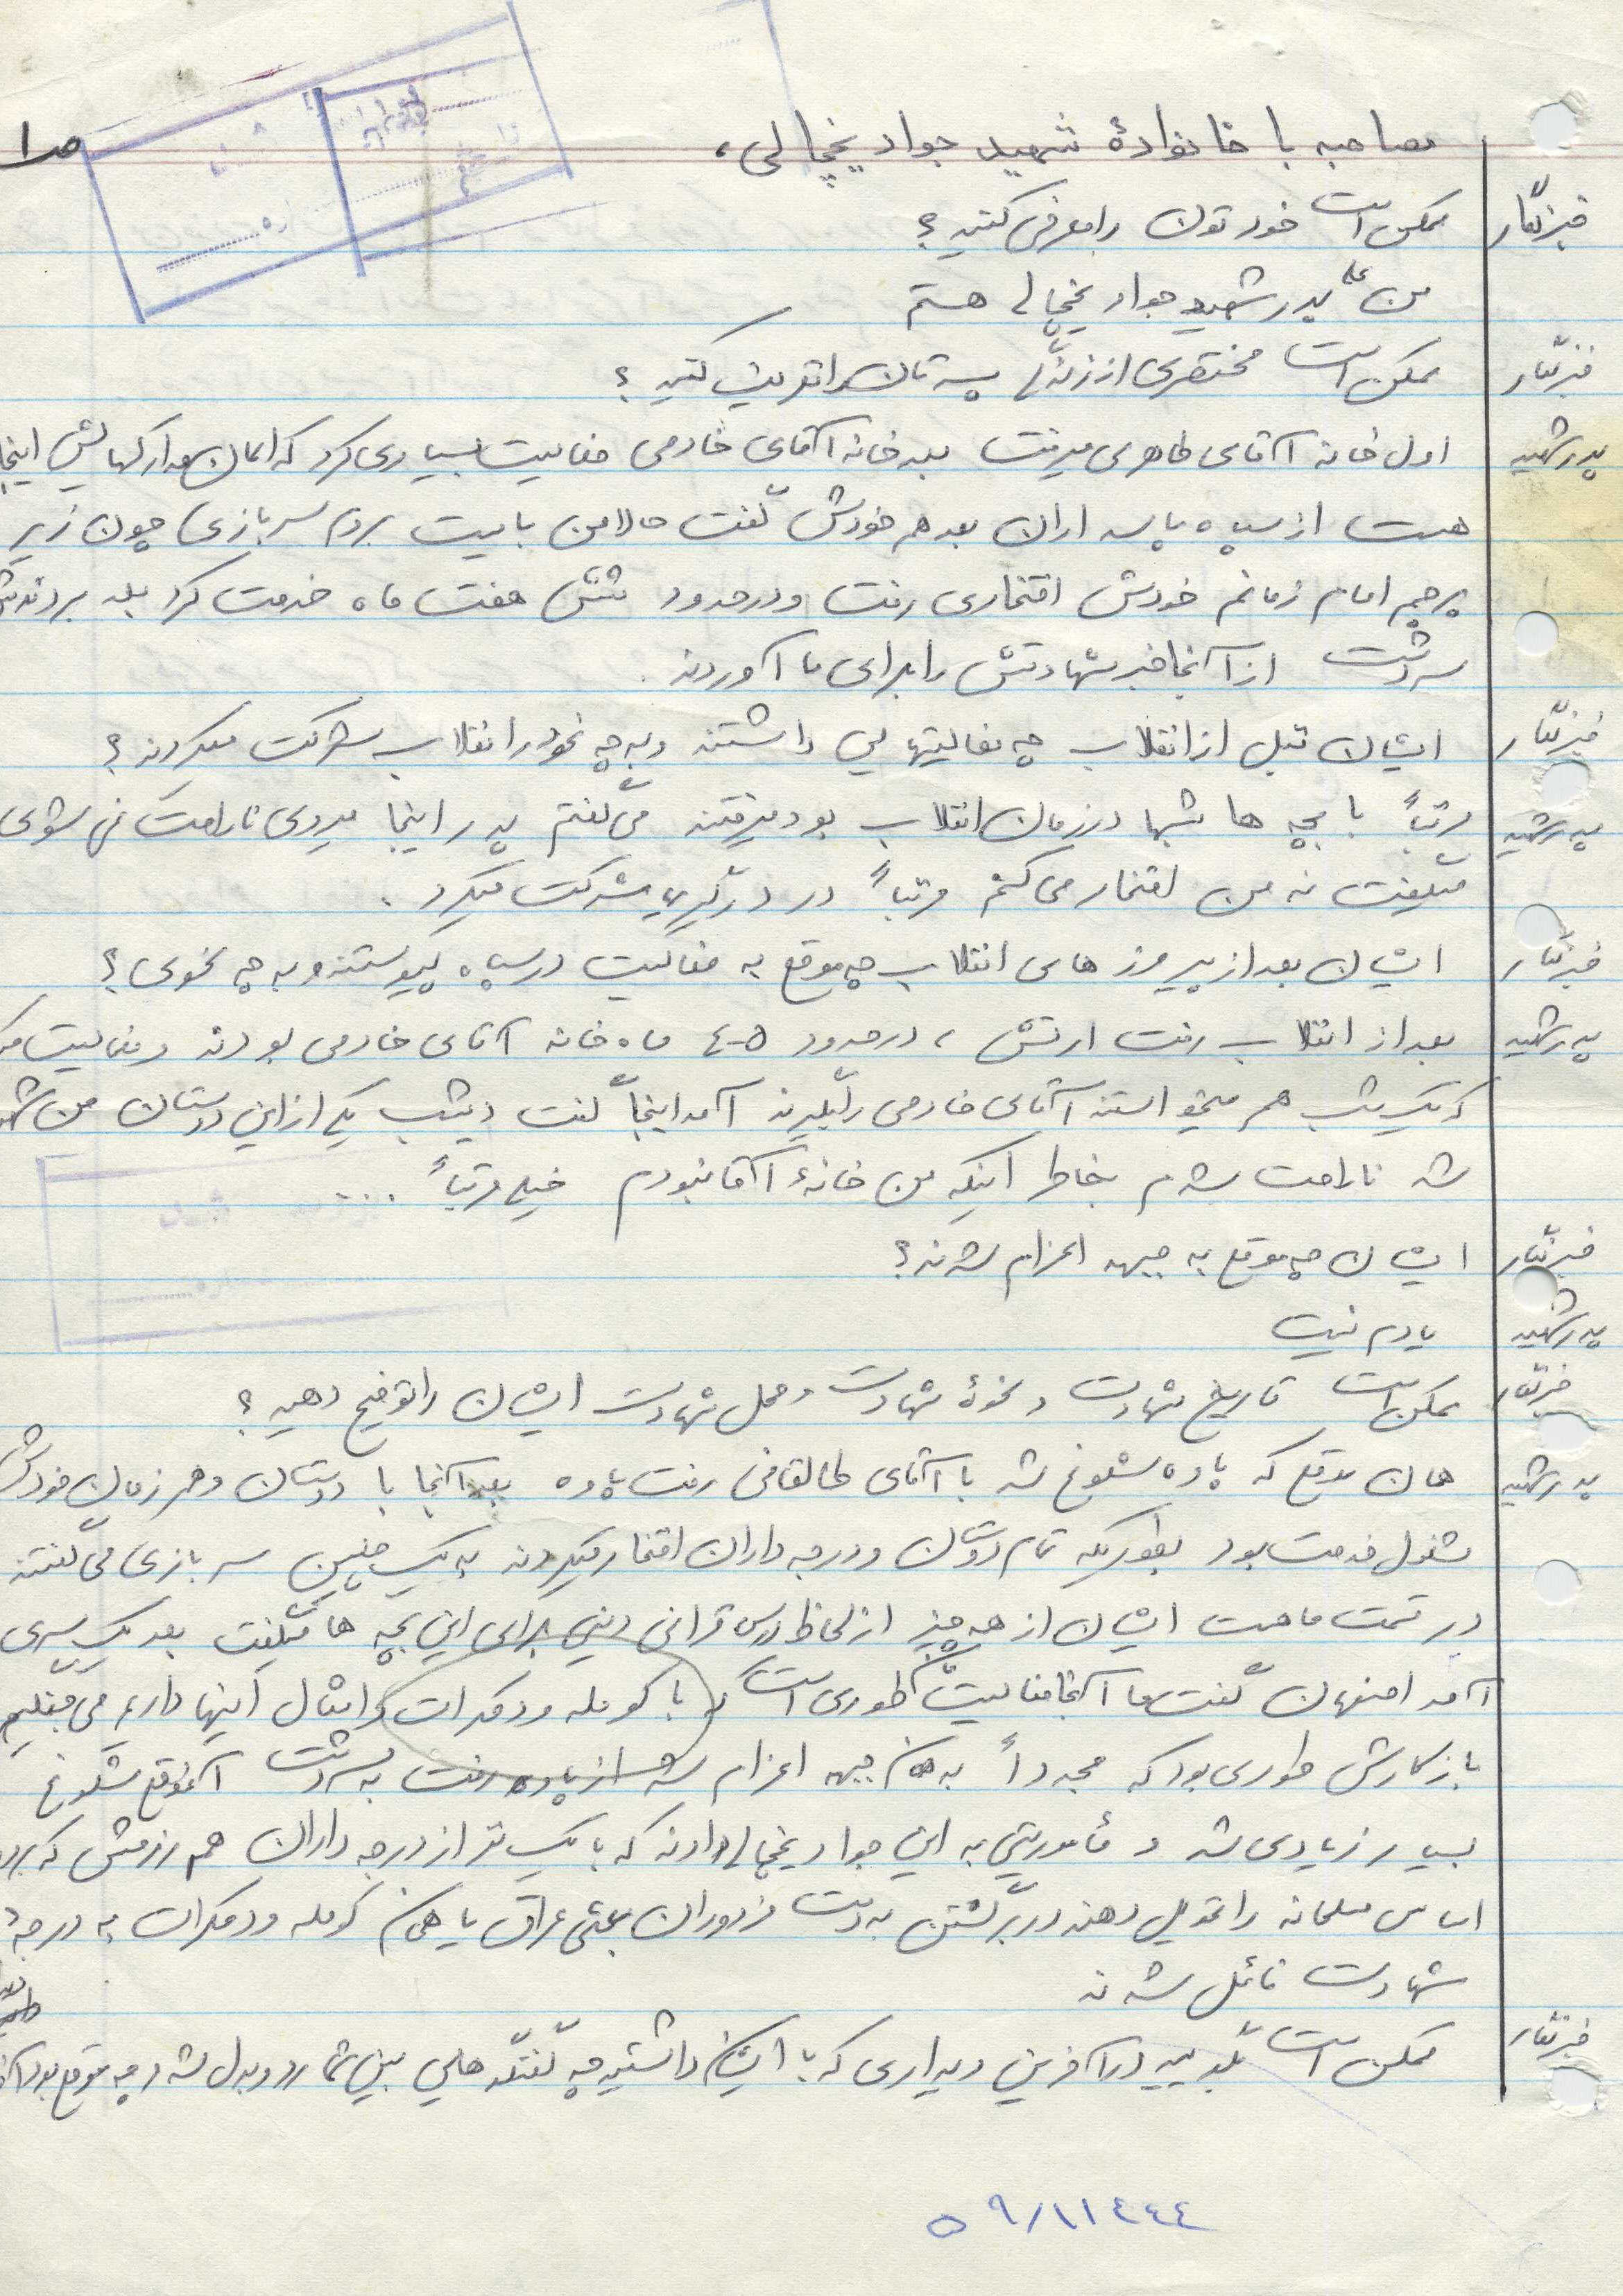 ص۱
مصاحبه با خانوادهٔ شهید جواد یخچالی،
خبرنگار ممکن است خودتون را معرفی کنید؟
من پدر شهید جواد یخچالی هستم
خبرنگار ممکن است مختصری از زندگی پسرتان را تعریف کنید؟
پدر شهید اول خانه آقای طاهری میرفت بعد خانه آقای خادمی فعالیت بسیاری کرد که الان مدارکهایش اینجا
هست از سپاه پاسداران بعد هم خودش گفت حالا من بایست بروم سربازی چون زیر
پرچم امام زمانم خودش افتخاری رفت و در حدود شش هفت ماه خدمت کرد بعد بردندش
سردشت از آنجا خبر شهادتش را برای ما آوردند.
خبرنگار ایشان قبل از انقلاب چه فعالیتهایی داشتند و به چه نحو در انقلاب شرکت میکردند؟
پدر شهید مرتباً با بچه ها شبها در زمان انقلاب بود میرفتند می گفتم پدر اینجا میروی ناراحت نمی شوی
میگفت نه من افتخار می کنم مرتباً در درگیری شرکت میکرد.
خبرنگار ایشان بعد از پیروزهای انقلاب چه موقع به فعالیت در سپاه پیوستند و به چه نحوی؟
پدر شهید بعد از انقلاب رفت ارتش، در حدود ٥-٤ ماه خانه آقای خادمی بودند و فعالیت
که یک شب هم میخواستند آقای خادمی را بگیرند آمد اینجا گفت دیشب یکی از این دوستان من
شد ناراحت شدم بخاطر اینکه من خانهٔ آقا نبودم خیلی مرتباً ...
خبرنگار ایشان چه موقع به جبهه اعزام شدند؟
پدر شهید یادم نیست
خبرنگار ممکن است تاریخ شهادت و نحوهٔ شهادت و محل شهادت ایشان را توضیح دهید؟
پدر شهید همان موقع که پاوه شلوغ شد با آقای طالقانی رفت پاوه بعد آنجا با دوستان و هم رزمان خودش
مشغول خدمت بود بطوریکه تمام دوستان و درجه داران افتخار میکردند به یک چنین سربازی می گفتند
در قسمت ما هست ایشان از همه چیز از لحاظ درس قرانی دینی برای این بچه ها میگفت بعد یک سری
آمد اصفهان گفت ما آنجا فعالیتش طوری است و با کومله و دمکرات و امثال اینها داریم می جنگیم
باز کارش طوری بود که مجدداً به همان جبهه اعزام شد از پاوه رفت به سردشت آنموقع شلوغ
بسیار زیادی شد و مأموریتی به این جواد یخچالی دادند که با یک نفر از درجه داران هم رزمش که
اساس را تحویل دهند در برگشتن به دست مزدوران بعثی عراق یا همان کومله و دمکرات به درجهٔ
شهادت نائل شدند
خبرنگار ممکن است بگویید در آخرین دیداری که با ایشان داشتید چه گفتگوهایی بین شما رد و بدل شد و چه موقع بود
٥٩/١١٤٤٤